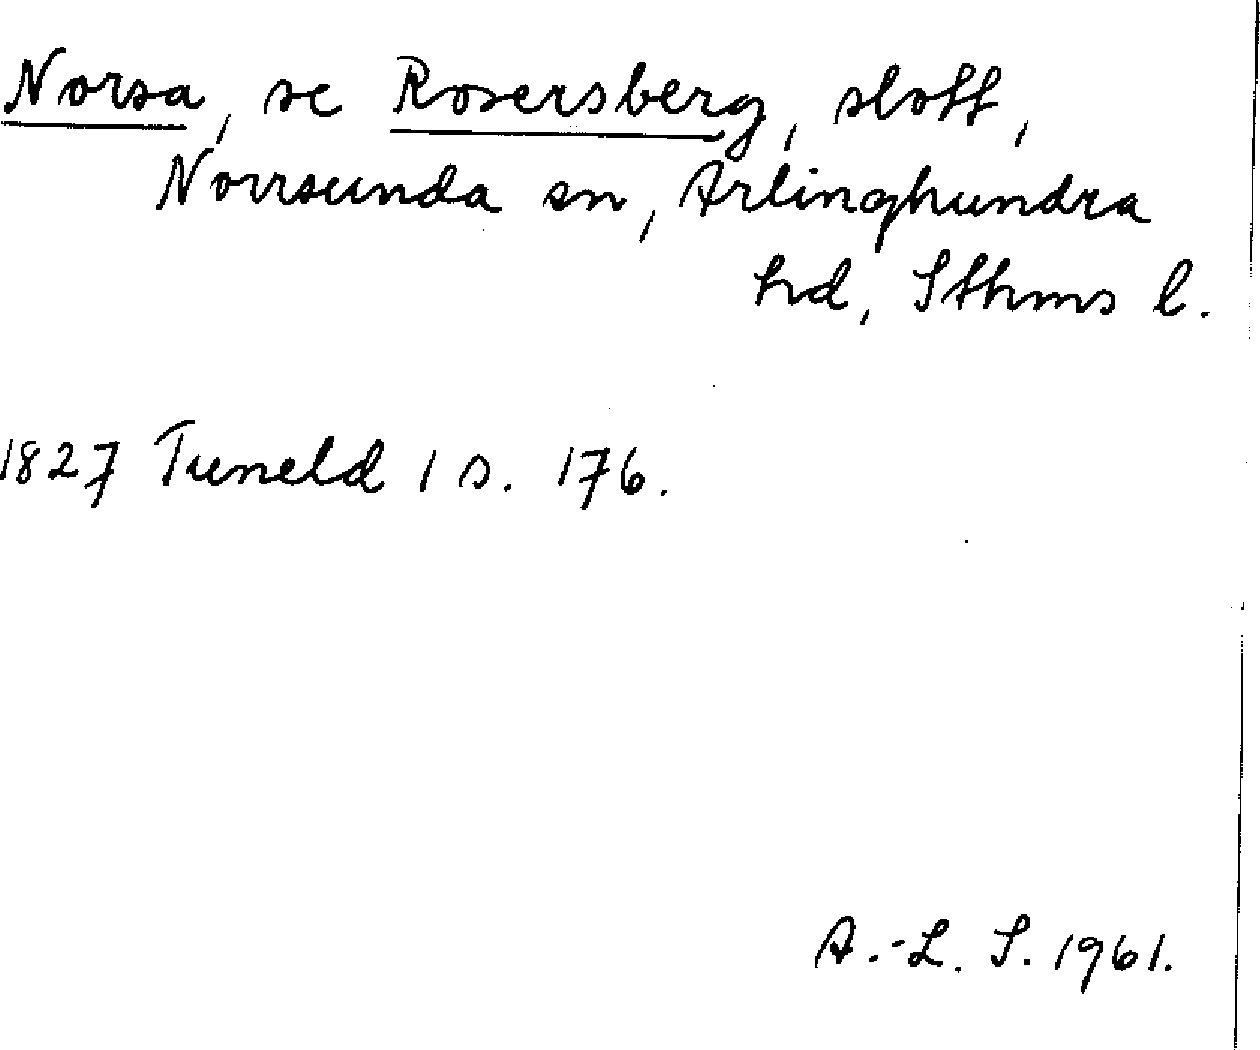 Norsa, se Rosersberg, slott,
Norrsunda sn, Arlinghundra
hd, Sthms l.
1827 Tuneld 1 s. 176.
A.-L. S. 1961.